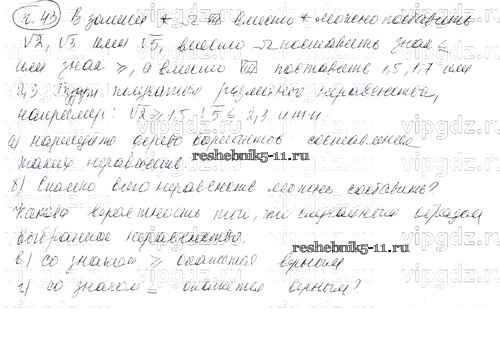 п. 43 В записи * Ω ▥ вместо * можно поставить
√2, √3 или √5, вместо Ω поставить знак ≤
или знак ≥, а вместо ▥ поставить 1,5, 1,7 или
2,3 будут получаться разные неравенства,
например: √2 ≥ 1,5 √5 ≤ 2,3 и т.п.
а) нарисуйте дерево вариантов составления
таких неравенств.
reshebnik5-11.ru
б) Сколько всего неравенств можно составить?
Какова вероятность того, что случайным образом
выбранное неравенство.
reshebnik5-11.ru
в) со знаком ≥ окажется верным
г) со знаком ≤ окажется верным?
vipgdz.com